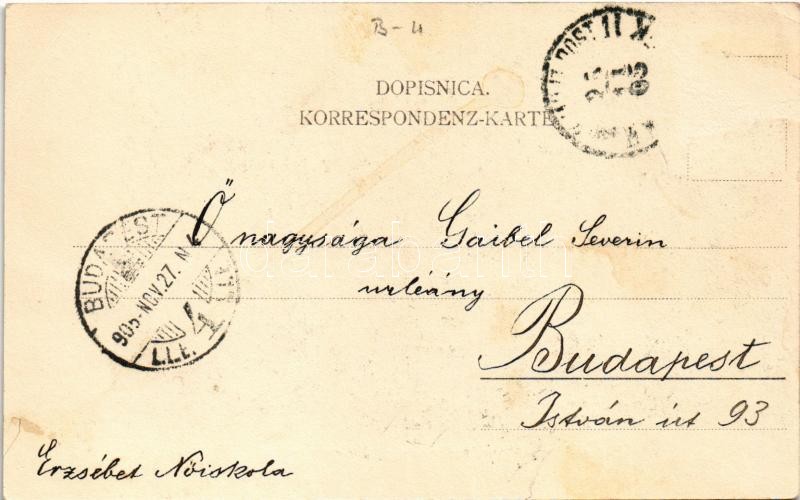 B-4
DOPISNICA.
KORRESPONDENZ-KARTE
POST
05
Ő nagysága Gaibel Severin
urleány
Budapest
István út 93
Erzsébet Nőiskola
BUDAPEST
905 NOV. 27. N